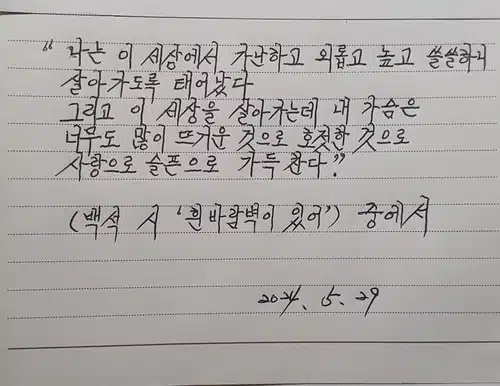 "나는 이 세상에서 가난하고 외롭고 높고 쓸쓸하니
살아가도록 태어났다
그리고 이 세상을 살아가는데 내 가슴은
너무도 많이 뜨거운 것으로 호젓한 것으로
사랑으로 슬픔으로 가득 찬다."
(백석 시 '흰바람벽이 있어') 중에서
2024. 5. 29